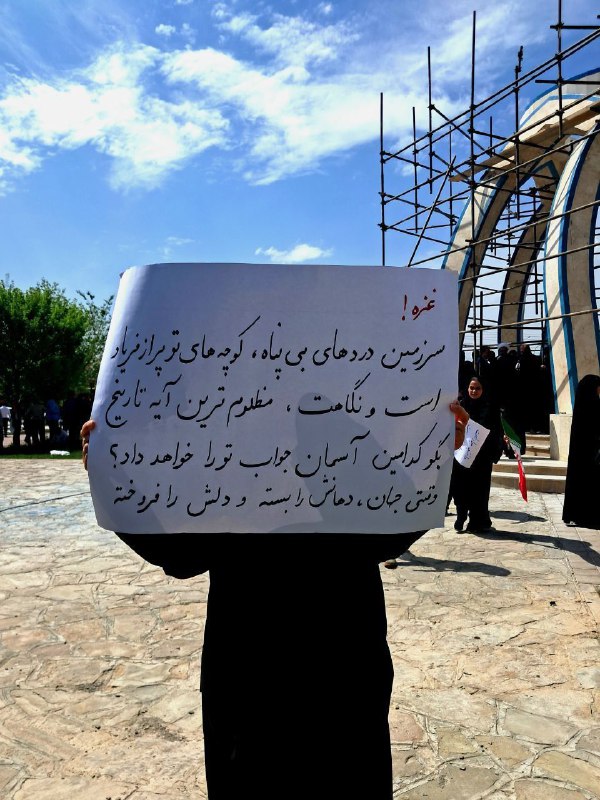 غزه!
سرزمین دردهای بی پناه، کوچه های تو پر از فریاد
است و نگاهت، مظلوم ترین آیه تاریخ
بگو کدامین آسمان جواب تو را خواهد داد؟
وقتی جهان، دهانش را بسته و دلش را فروخته